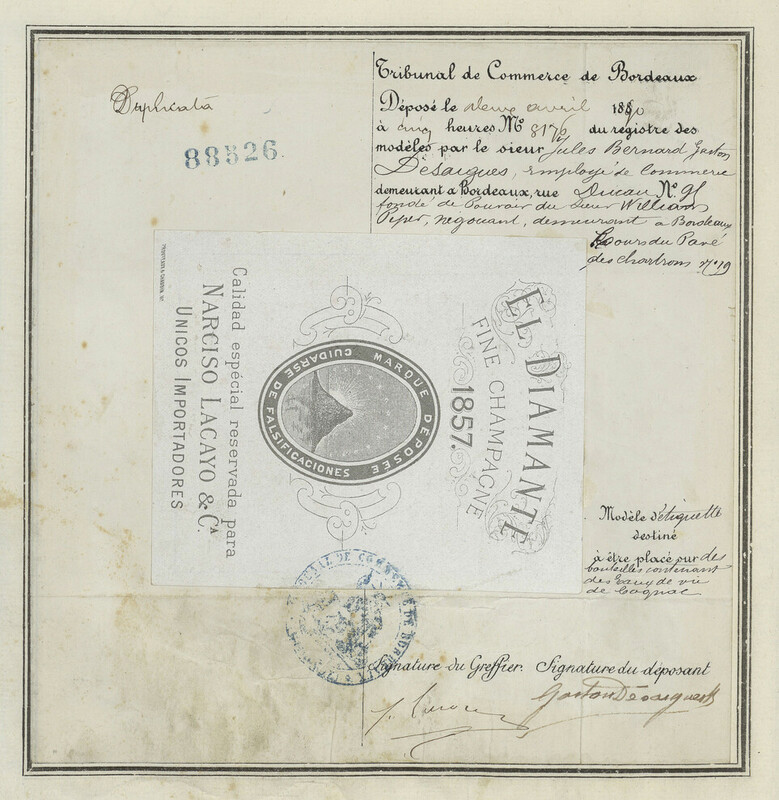 Duplicata
88526.
Tribunal de Commerce de Bordeaux
Déposé le deux avril 1890
à cinq heures Nº 8176 du registre des
modèles par le sieur Jules Bernard Gaston
Désaigues, employé de Commerce
demeurant a Bordeaux, rue Ducau Nº 91
fondé de Pouvoir du Sieur William
Piper, négociant, demeurant a Bordeaux
Cours du Pavé
des Chartrons nº 19
EL DIAMANTE
FINE CHAMPAGNE
1857.
MARQUE DÉPOSÉE
CUIDARSE DE FALSIFICACIONES
Calidad espécial reservada para
NARCISO LACAYO & Cª
UNICOS IMPORTADORES
Modèle d'étiquette
destiné
à être placé sur des
bouteilles contenant
des Eaux de vie
de Cognac
TRIBUNAL DE COMMERCE DE BORDEAUX
Signature du Greffier. Signature du déposant
Gaston Désaigues